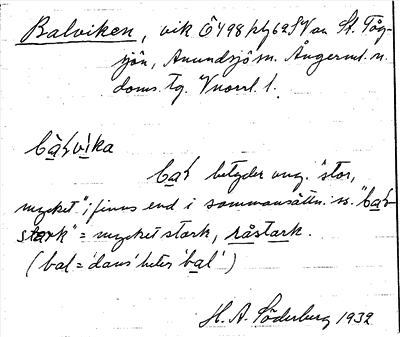 Balviken, vik Ö 498 pkt 629 V om St. Tåg-
sjön, Anundsjö sn. Ångerml. n.
doms. tg. Vnorrl. l.
baɫvika
baɫ betyder ung. "stor,
mycket"; finns end i sammansättn. ss. "baɫ-
stark" = mycket stark, råstark.
(bal = 'dans' heter 'bal')
H. A. Söderberg 1932